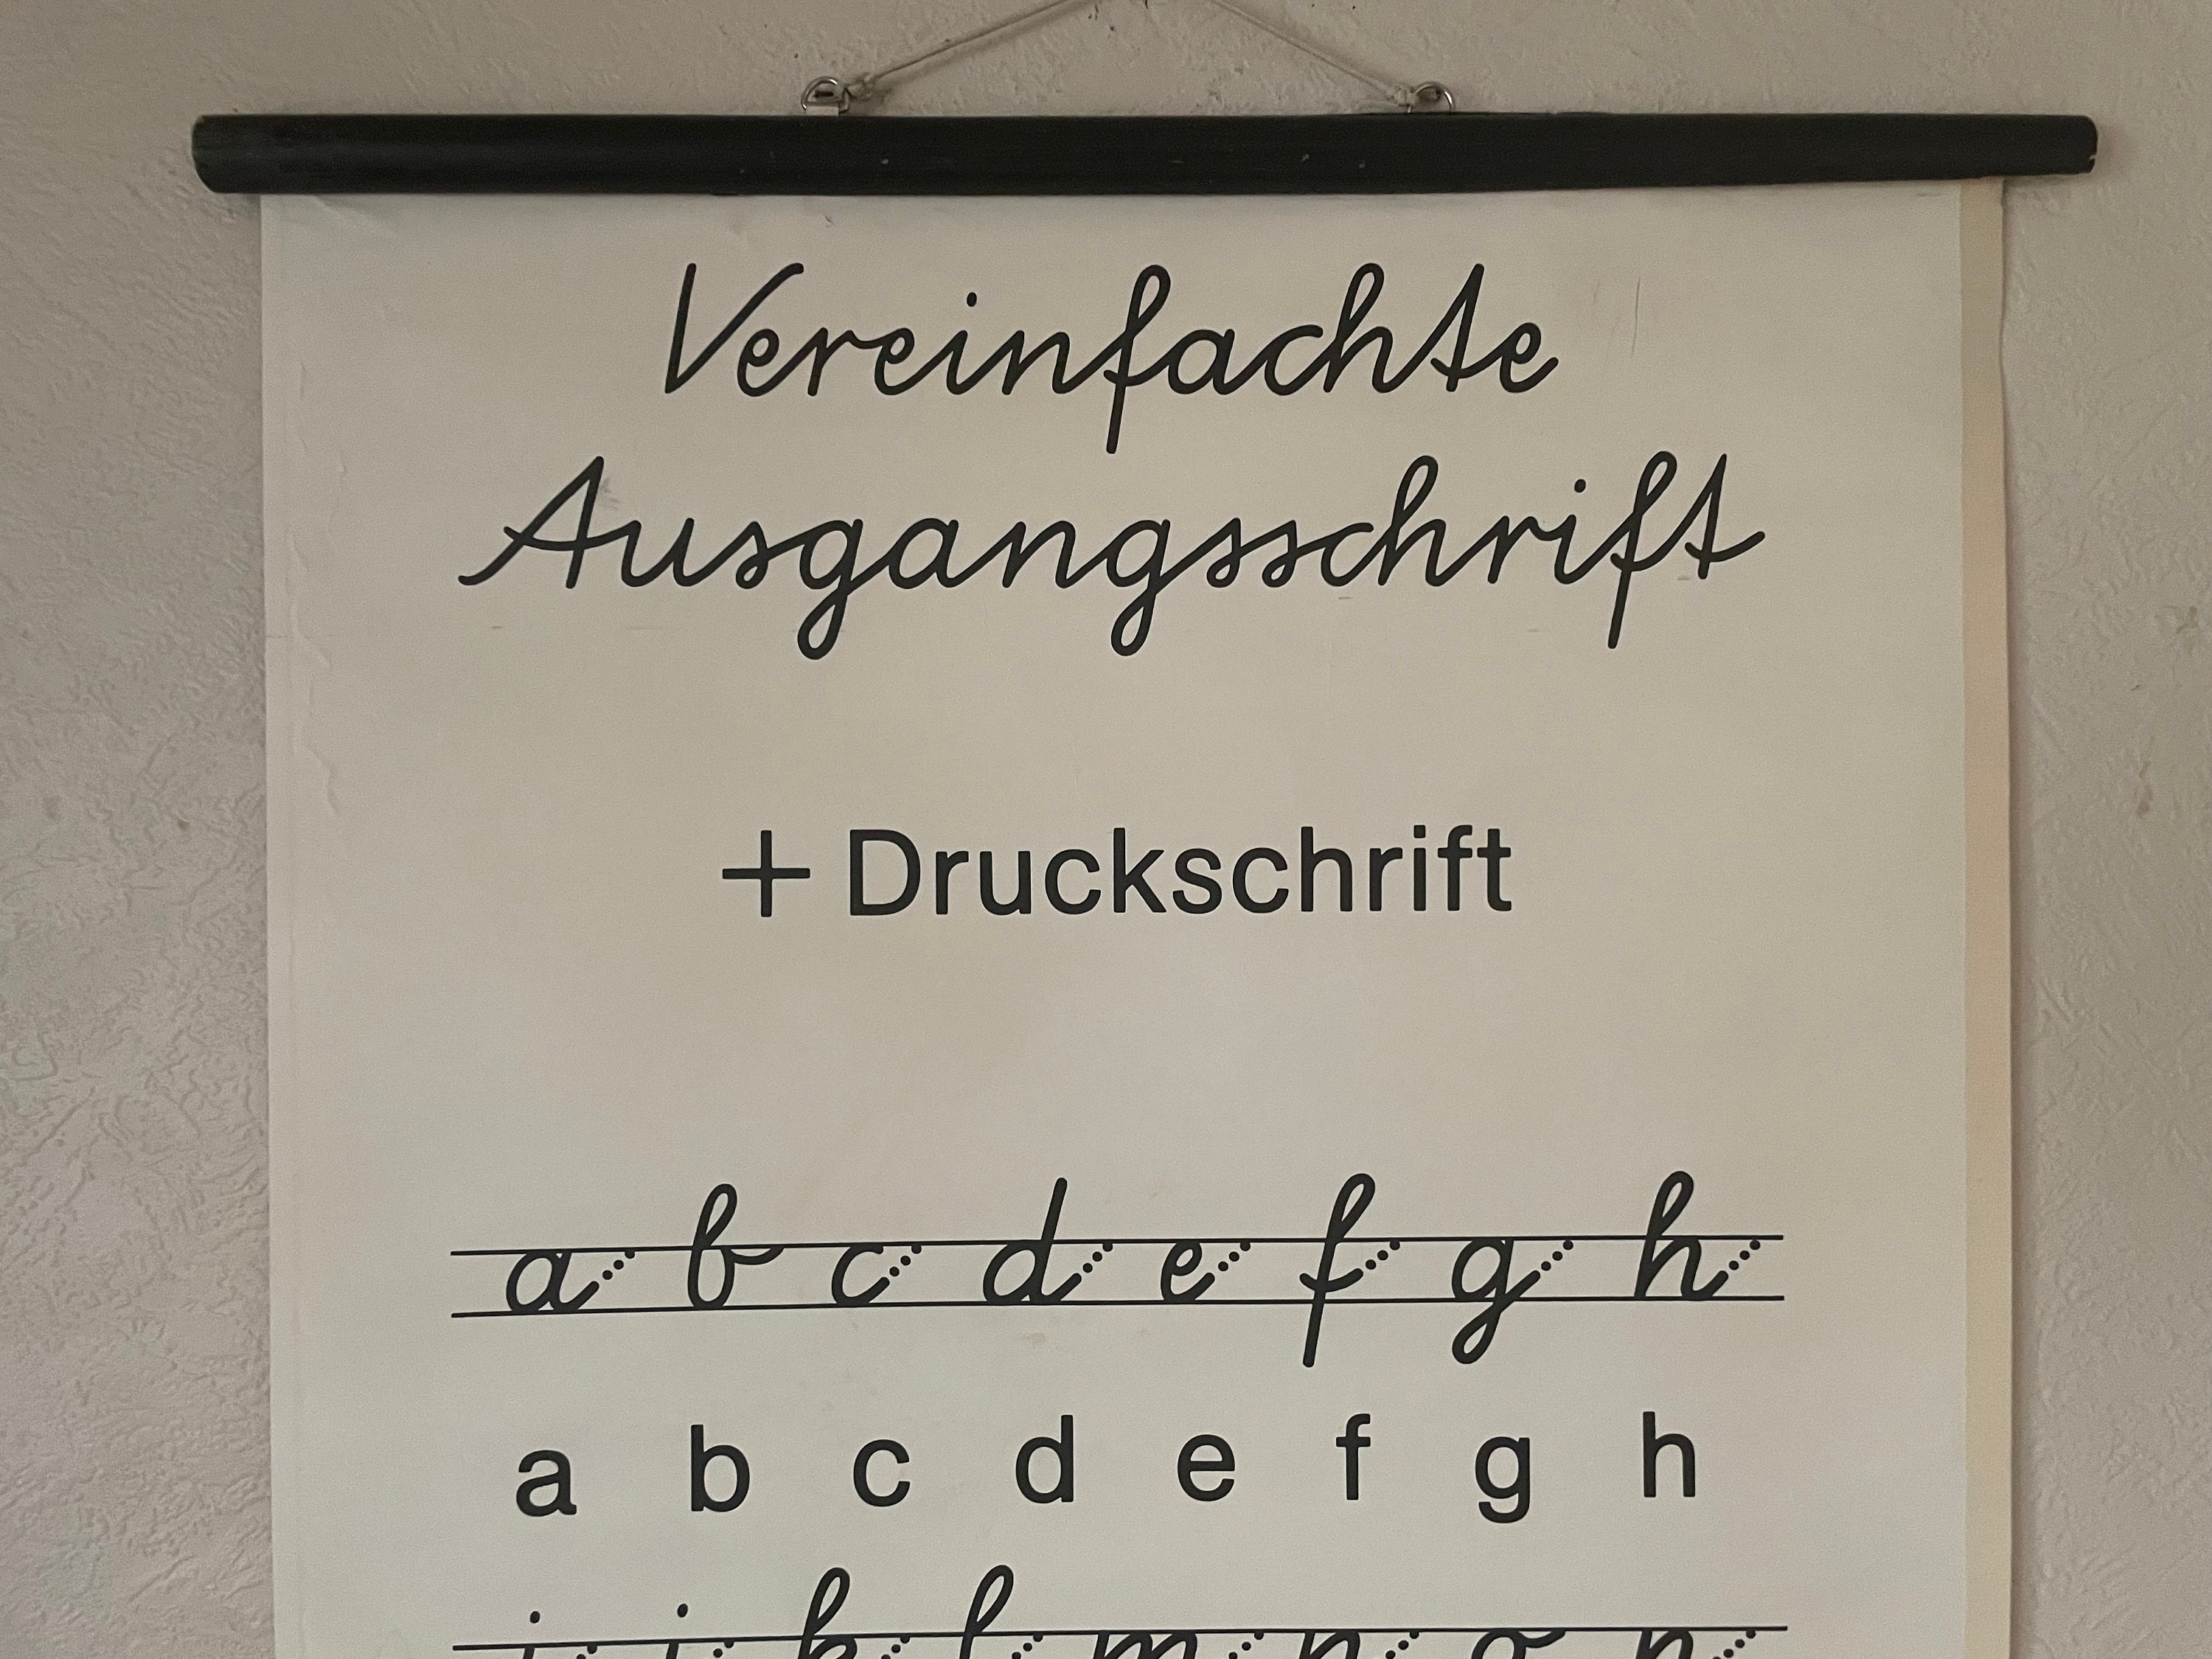 Vereinfachte
Ausgangsschrift
+ Druckschrift
a b c d e f g h
a b c d e f g h
i j k l m n o p